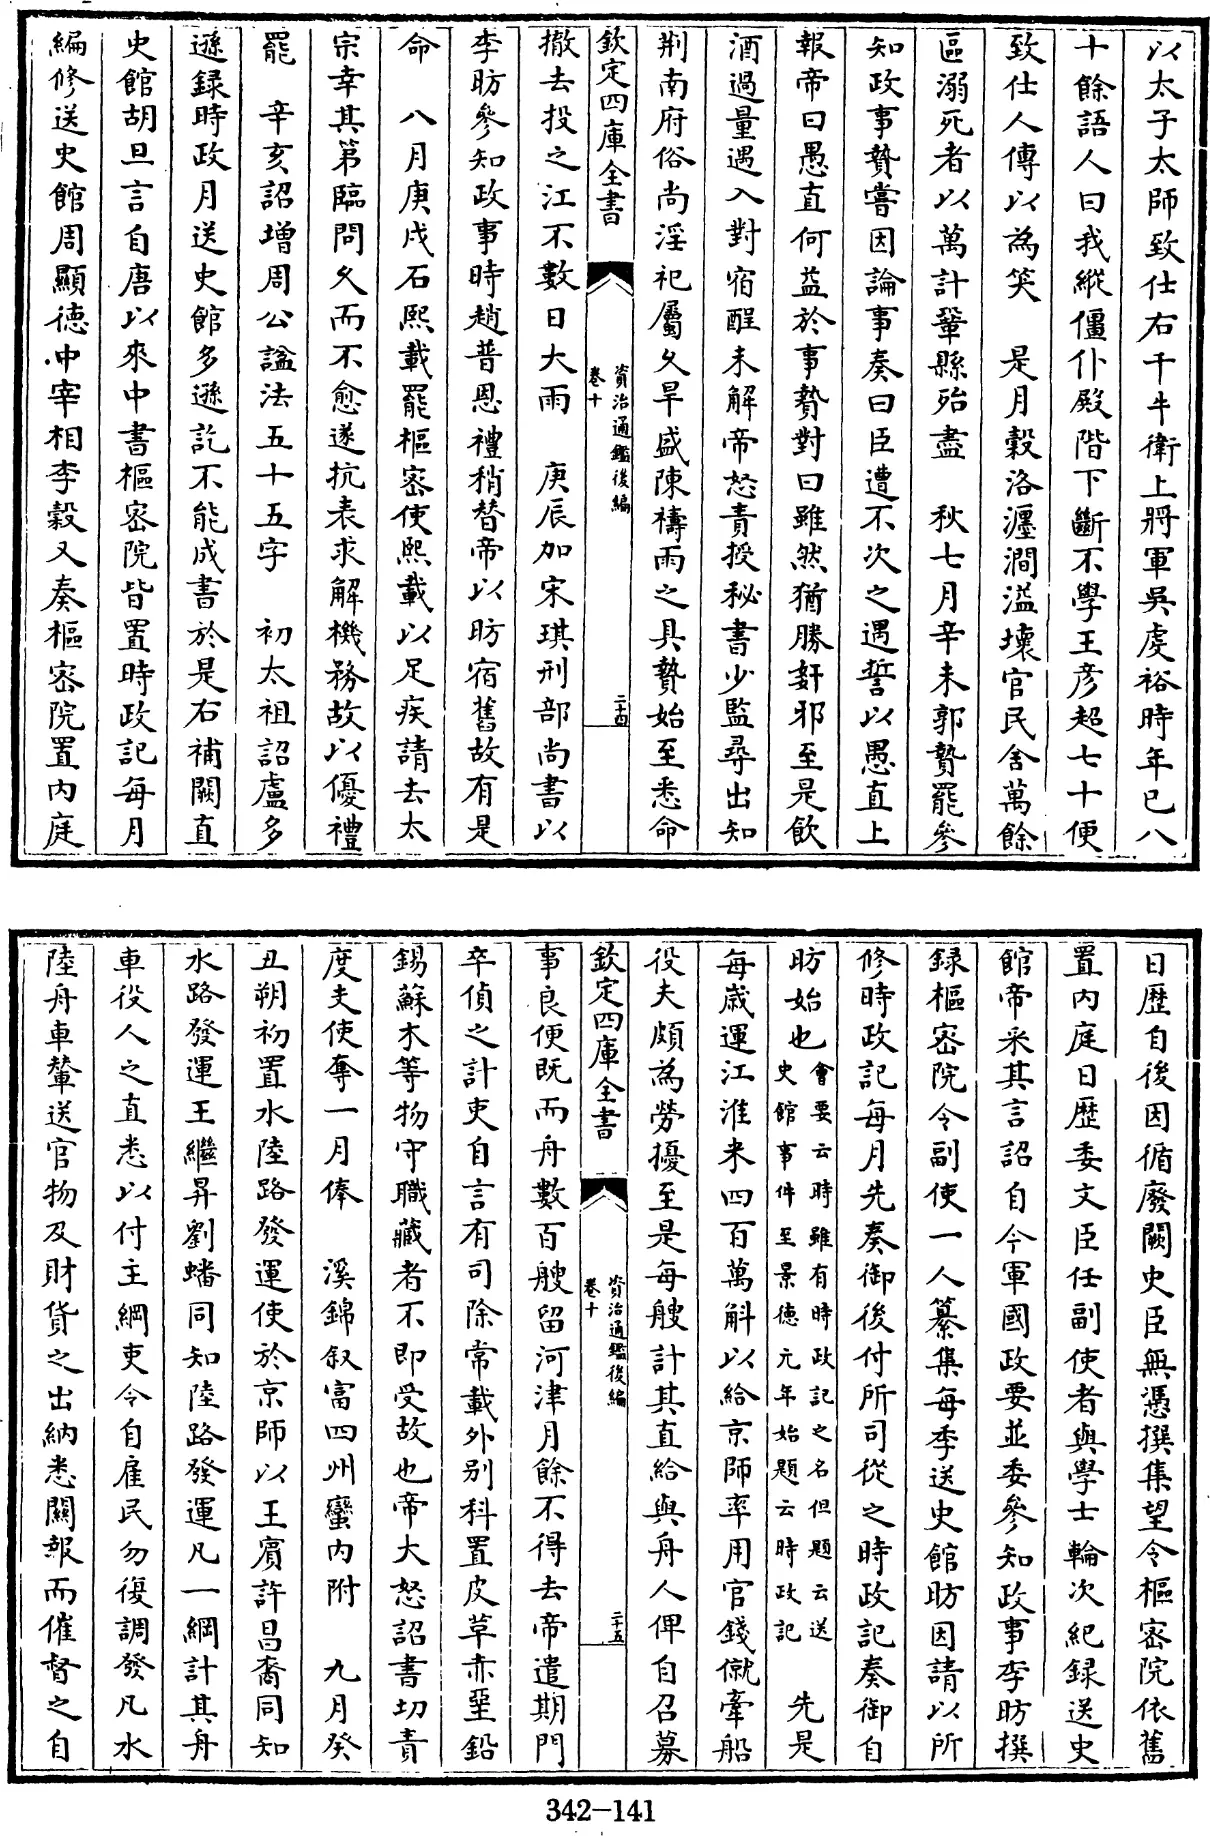 以太子太師致仕右千牛衛上將軍吳虔裕時年已八
十餘語人曰我縱僵仆殿階下斷不學王彦超七十便
致仕人傳以為笑　是月穀洛瀍澗溢壞官民舍萬餘
區溺死者以萬計鞏縣殆盡　秋七月辛未郭贄罷參
知政事贄嘗因論事奏曰臣遭不次之遇誓以愚直上
報帝曰愚直何益於事贄對曰雖然猶勝奸邪至是飲
酒過量遇入對宿酲未解帝怒責授秘書少監尋出知
荆南府俗尚淫祀屬久旱盛陳禱雨之具贄始至悉命
欽定四庫全書
資治通鑑後編
卷十
二十四
撤去投之江不數日大雨　庚辰加宋琪刑部尚書以
李昉參知政事時趙普恩禮稍替帝以昉宿舊故有是
命　八月庚戌石熙載罷樞密使熙載以足疾請去太
宗幸其第臨問久而不愈遂抗表求解機務故以優禮
罷　辛亥詔增周公諡法五十五字　初太祖詔盧多
遜録時政月送史館多遜訖不能成書於是右補闕直
史館胡旦言自唐以來中書樞密院皆置時政記每月
編修送史館周顯德中宰相李穀又奏樞密院置内庭
日歷自後因循廢闕史臣無憑撰集望令樞密院依舊
置内庭日歷委文臣任副使者與學士輪次紀録送史
館帝采其言詔自今軍國政要並委參知政事李昉撰
録樞密院令副使一人纂集每季送史館昉因請以所
修時政記每月先奏御後付所司從之時政記奏御自
昉始也會要云時雖有時政記之名但題云送史館事件至景德元年始題云時政記　先是
每歲運江淮米四百萬斛以給京師率用官錢僦牽船
役夫頗為勞擾至是每艘計其直給與舟人俾自召募
欽定四庫全書
資治通鑑後編
卷十
二十五
事良便既而舟數百艘留河津月餘不得去帝遣期門
卒偵之計吏自言有司除常載外别科置皮革赤堊鉛
錫蘇木等物守職藏者不即受故也帝大怒詔書切責
度支使奪一月俸　溪錦叙富四州蠻内附　九月癸
丑朔初置水陸路發運使於京師以王賓許昌裔同知
水路發運王繼昇劉蟠同知陸路發運凡一綱計其舟
車役人之直悉以付主綱吏令自雇民勿復調發凡水
陸舟車輦送官物及財貨之出納悉關報而催督之自
342-141